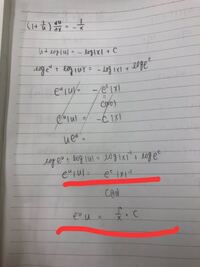 (1+1/u) du/dx = -1/x
u+log|u| = -log|x| + C
log e^u + log|u| = -log|x| + log e^C
e^u|u| = -e^C|x|
C(≠0)
e^u|u| = -C|x|
u e^u =
log e^u + log|u| = log|x|^-1 + log e^C
e^u|u| = e^C|x|^-1
C(≠0)